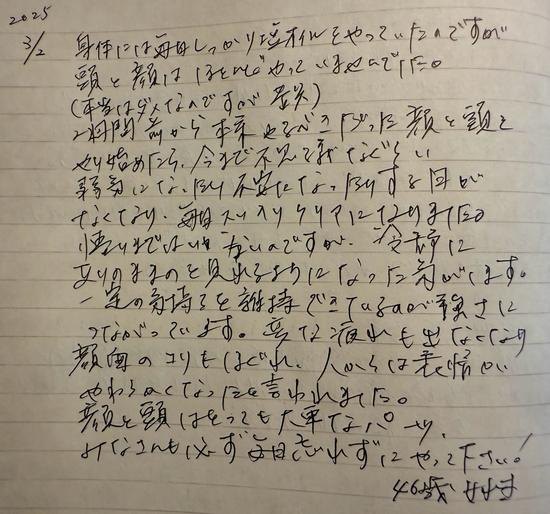 2025
3/2
身体には毎日しっかり塩オイルをやっていたのですが
頭と顔はほとんどやっていませんでした。
(本当はダメなのですが 笑)
2週間前から本来やるべきだった顔と頭を
やり始めたら、今まで不思議なぐらい
弱気になったり不安になったりする日が
なくなり、毎日スッスリクリアになりました。
悟りまではいかないのですが、冷静に
ありのままのを見れるようになった気がします。
一定の気持ちを維持できているのが強さに
つながっています。変な疲れも出なくなり
顔面のコリもほぐれ、人からは表情が
やわらかくなったと言われました。
顔と頭はとっても大事なパーツ、
みなさんも必ず毎日忘れずにやって下さい!
46歳 女性